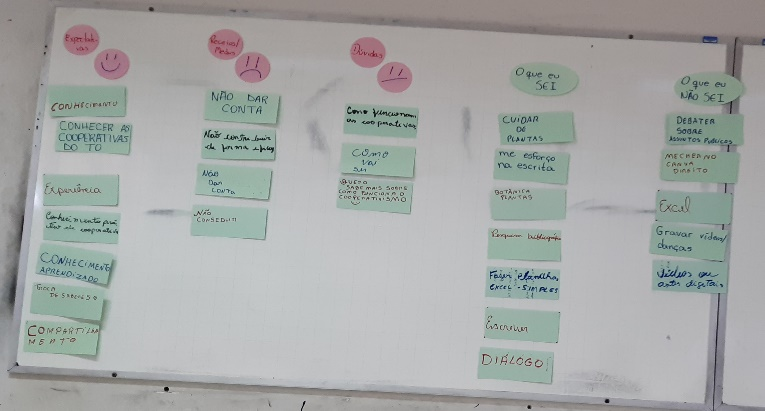 Expectati-
vas
CONHECIMENTO
CONHECER AS
COOPERATIVAS
DO TO
Experiência
CONHECIMENTO
APRENDIZADO
TROCA
DE SABERES
COMPARTILHA
MENTO
Receios/
Medos
!!
NÃO DAR
CONTA
Não contribuir
de forma eficaz
NÃO
DAR
CONTA
NÃO
CONSEGUIR
Dúvidas
!!
Como funcionam
as cooperativas
CÔMO
VAI
SER
QUERO
SABE MAIS SOBRE
COMO FUNCIONA O
COOPERATIVISMO
O que eu
SEI
CUIDAR
DE
PLANTAS
me esforço
na escrita
BOTÂNICA
PLANTAS
Pesquisa bibliográfica
Fazer planilhas
EXCEL - SIMPLES
Escrever
DIÁLOGO
O que eu
NÃO SEI
DEBATER
SOBRE
ASSUNTOS PÚBLICOS
MECHER NO
CANVA
DIREITO
Excel
Gravar vídeos/
danças
Vídeos ou
artes digitais